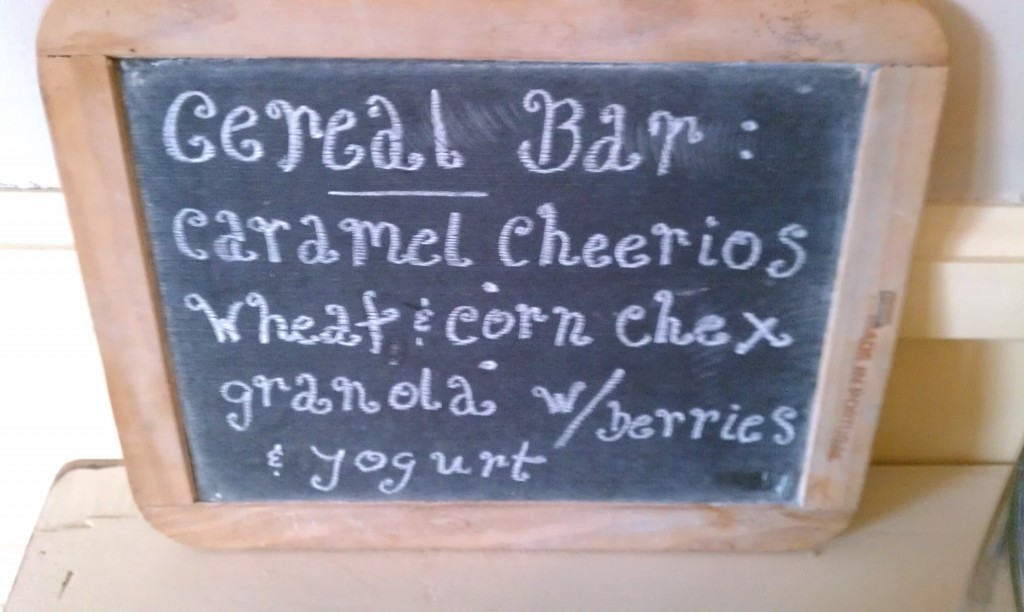 Cereal Bar:
caramel cheerios
wheat & corn chex
granola w/berries
& yogurt
MADE IN PORTUGAL